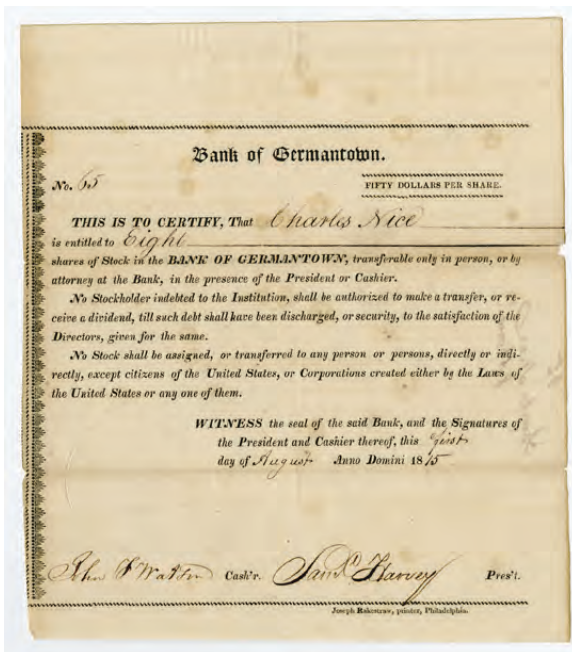 Bank of Germantown.
No. 65
FIFTY DOLLARS PER SHARE.
THIS IS TO CERTIFY, That Charles Nice
is entitled to Eight
shares of Stock in the BANK OF GERMANTOWN, transferable only in person, or by
attorney at the Bank, in the presence of the President or Cashier.
No Stockholder indebted to the Institution, shall be authorized to make a transfer, or re-
ceive a dividend, till such debt shall have been discharged, or security, to the satisfaction of the
Directors, given for the same.
No Stock shall be assigned, or transferred to any person or persons, directly or indi-
rectly, except citizens of the United States, or Corporations created either by the Laws of
the United States or any one of them.
WITNESS the seal of the said Bank, and the Signatures of
the President and Cashier thereof, this first
day of August Anno Domini 18 15
John F Watson Cash'r. Saml Harvey Pres't.
Joseph Rakestraw, printer, Philadelphia.